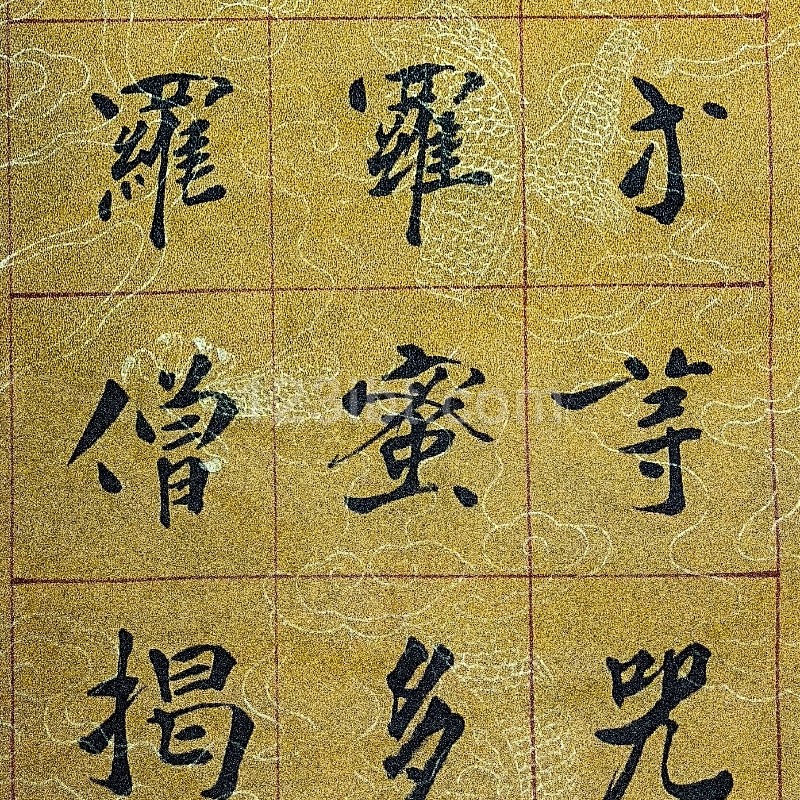 等等咒
羅蜜多
羅僧揭